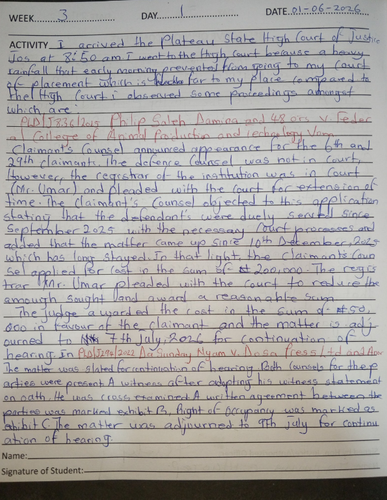 WEEK 3 DAY 1 DATE 01-06-2026
ACTIVITY I arrived the Plateau State High Court of Justice
Jos at 8:50 am I went to the High court because a heavy
rainfall that early morning prevented from going to my court
of placement which is far to my place compared to
the High Court I observed some proceedings amongst
which are:
PLD/J836/2015 Philip Saleh Damina and 48 ors v. Feder
al College of Animal Production and Technology Vom
Claimant's Counsel announced appearance for the 6th and
29th claimants. The defence Counsel was not in Court,
However, the registrar of the institution was in Court
(Mr. Umar) and pleaded with the Court for extension of
time. The Claimant's Counsel objected to this application
stating that the defendant's were duly served since
September 2025 with the necessary Court processes and
added that the matter came up since 10th December, 2025
which has long stayed. In that light, the Claimants Coun
sel applied for cost in the sum of ₦200,000. The regis
trar Mr. Umar pleaded with the court to reduce the
amough sought and award a reasonable sum
The judge awarded the cost in the sum of ₦50,
000 in favour of the claimant and the matter is adj
ourned to 7th July, 2026 for continuation of
hearing. In Da Sunday Nyam v. Press Ltd and
The matter was slated for continuation of hearing Both Counsels for the p
arties were present A witness after adopting his witness statement
on oath. He was cross examined A written agreement between the
parties was marked exhibit B. Right of Occupancy was marked as
exhibit C The matter was adjourned to 9th July for continu
ation of hearing.
Name:
Signature of Student: